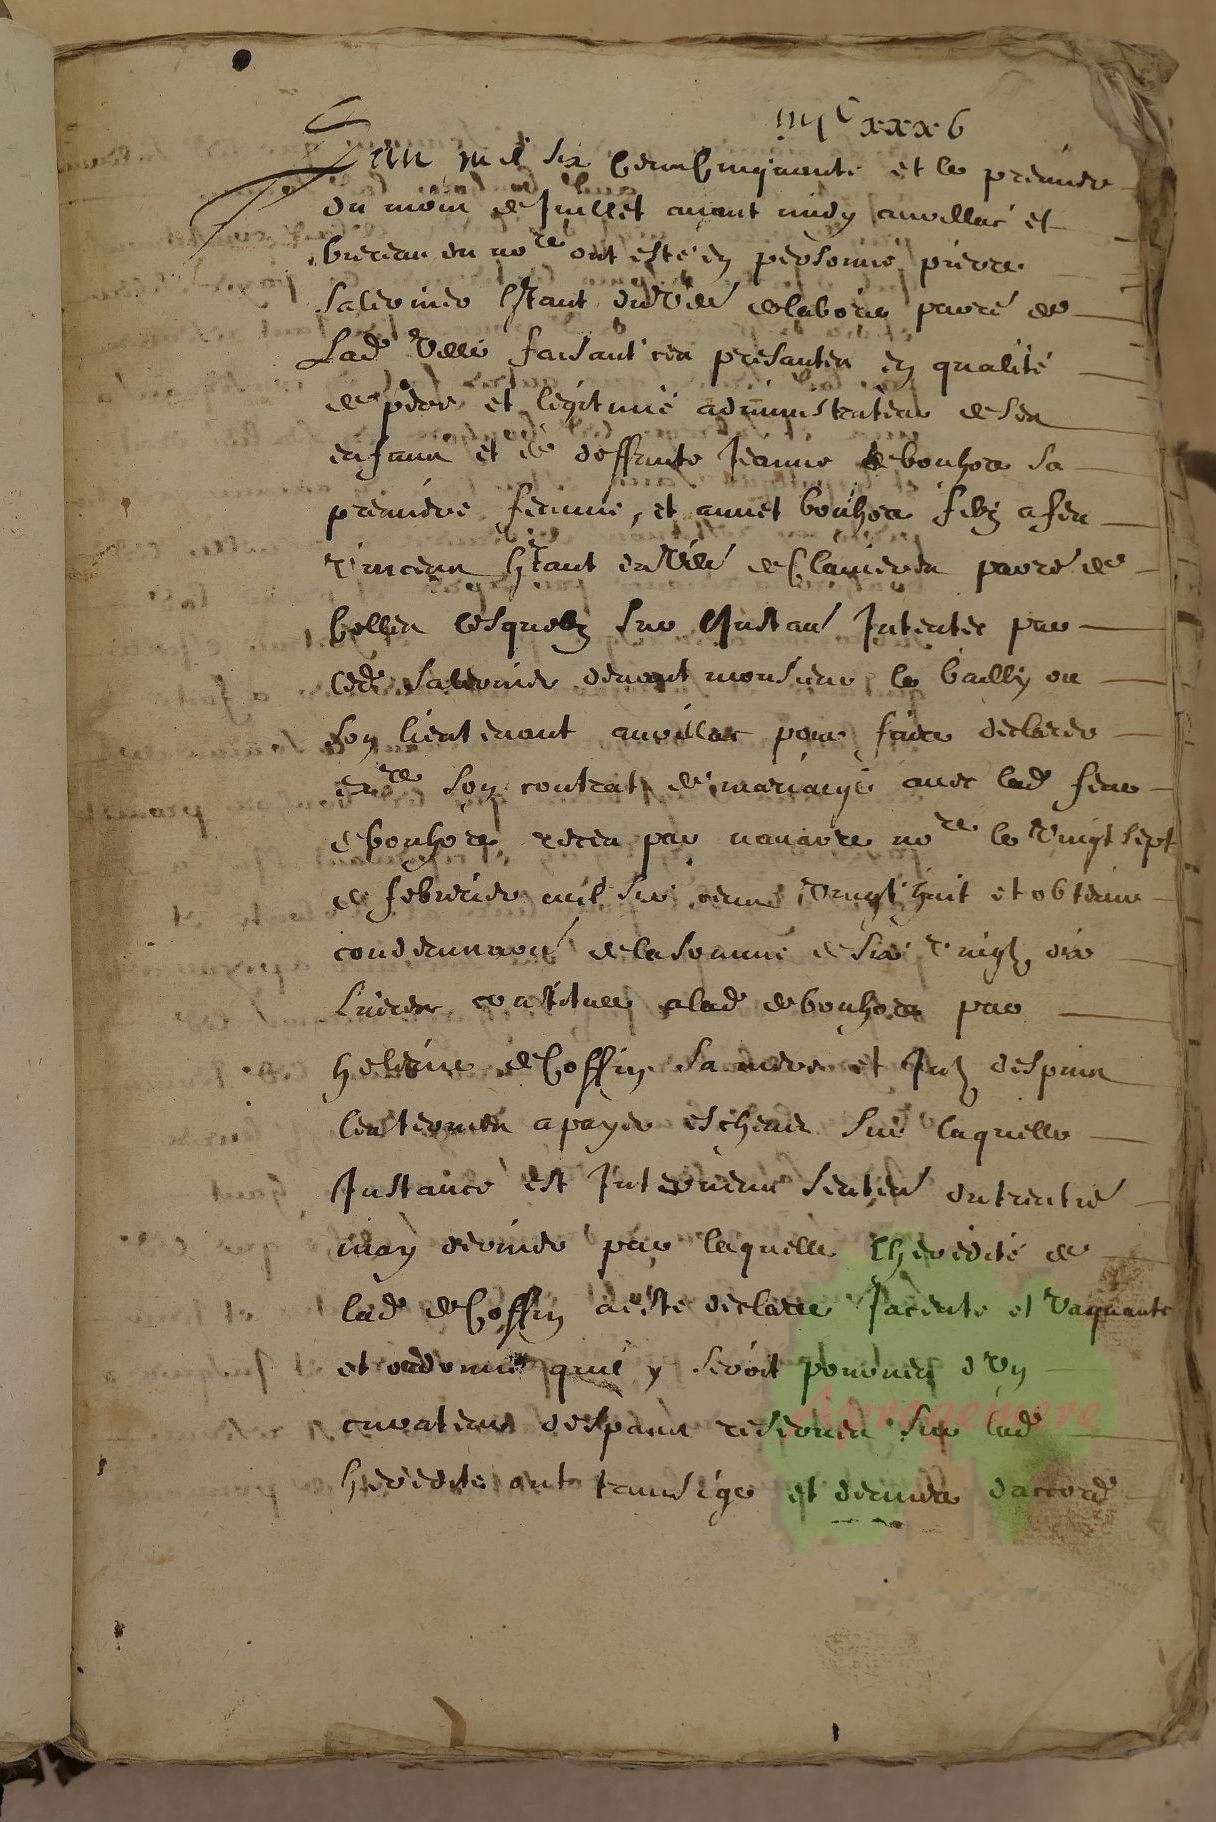 iiii c xxxv
Lan mil six cens cinquante et le premier
du mois de Juillet avant midy au vellac et
bureau du no re ont este en personne pierre
salevinier hstant du ville de laborie parre de
Lad ville faisant ces presantes en qualité
de pere et legitime administrateur de ses
enfans et de deffunte Jeanne de bonhore sa
premiere femme, et annet bonhore filz a feu
vincens hstant du ville de clavieres parre de
bellea lesquelz sur linstan Intentee par
led devant monsieur le bailly ou
son lieutenant pour faire declarer
ex re son contrat de mariaige avec lad feue
de bonhore receu par navarre no re le vingt sept
de febvrier mil six cens vingt huit et obtenir
condemnaon de la somme de six vingtz dix
Livres constituee a lad de bonhore par
helene de Coffin sa mere et Intz despuis
les termes a payer escheus sur laquelle
Instance est Intervenue senten du trentie
may dernier par laquelle lheredité de
lad de Coffin a esté declaree Jacente et vaquante
et ordonné quil y seroit pourveu dun
curateur despans reserves sur lad
heredite ont transige et demeure daccord
Aprogemere